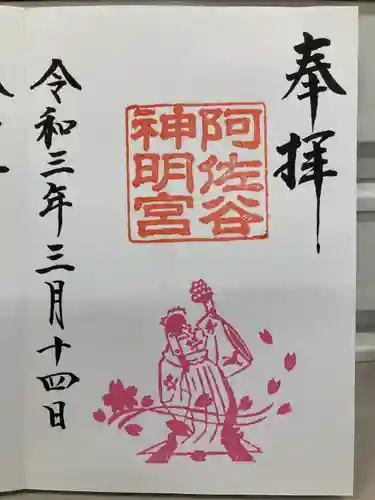 奉拝
阿佐谷
神明宮
令和三年三月十四日